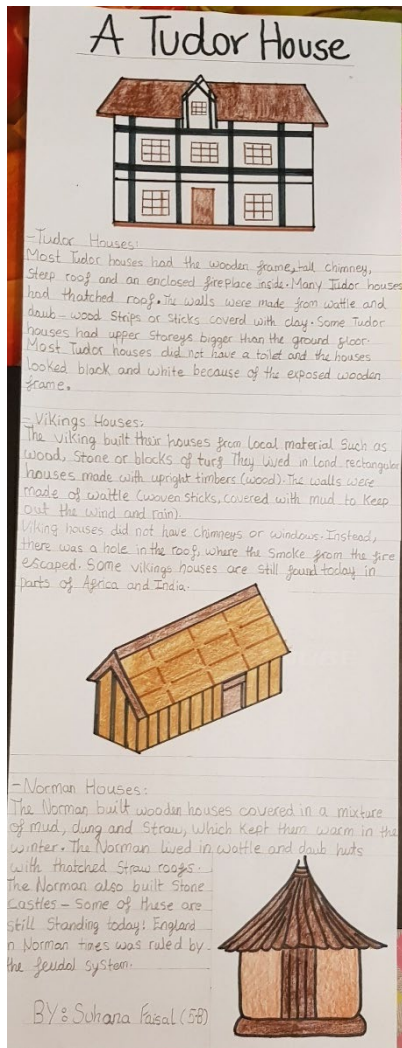 A Tudor House
- Tudor Houses:
Most Tudor houses had the wooden frame, tall chimney,
Steep roof and an enclosed fireplace inside. Many Tudor houses
had thatched roof. The walls were made from wattle and
daub - wood Strips or Sticks coverd with clay. Some Tudor
houses had upper Storeys bigger than the ground floor.
Most Tudor houses did not have a toilet and the houses
looked black and white because of the exposed wooden
frame.
- Vikings Houses:
The Viking built their houses from local material Such as
wood, Stone or blocks of turf They lived in lond rectangular
houses made with upright timbers (wood). The walls were
made of wattle (woven sticks, covered with mud to Keep
out the wind and rain)
Viking houses did not have chimneys or windows. Instead,
there was a hole in the roof, where the Smoke from the fire
escaped. Some vikings houses are still found today in
parts of Africa and India.
- Norman Houses:
The Norman built wooden houses covered in a mixture
of mud, dung and Straw, which Kept them warm in the
winter. The Norman lived in wattle and daub huts
with thatched Straw roofs.
The Norman also built Stone
Castles - Some of these are
still Standing today! England
n Norman times was ruled by
the feudal system.
BY: Suhana Faisal (5B)